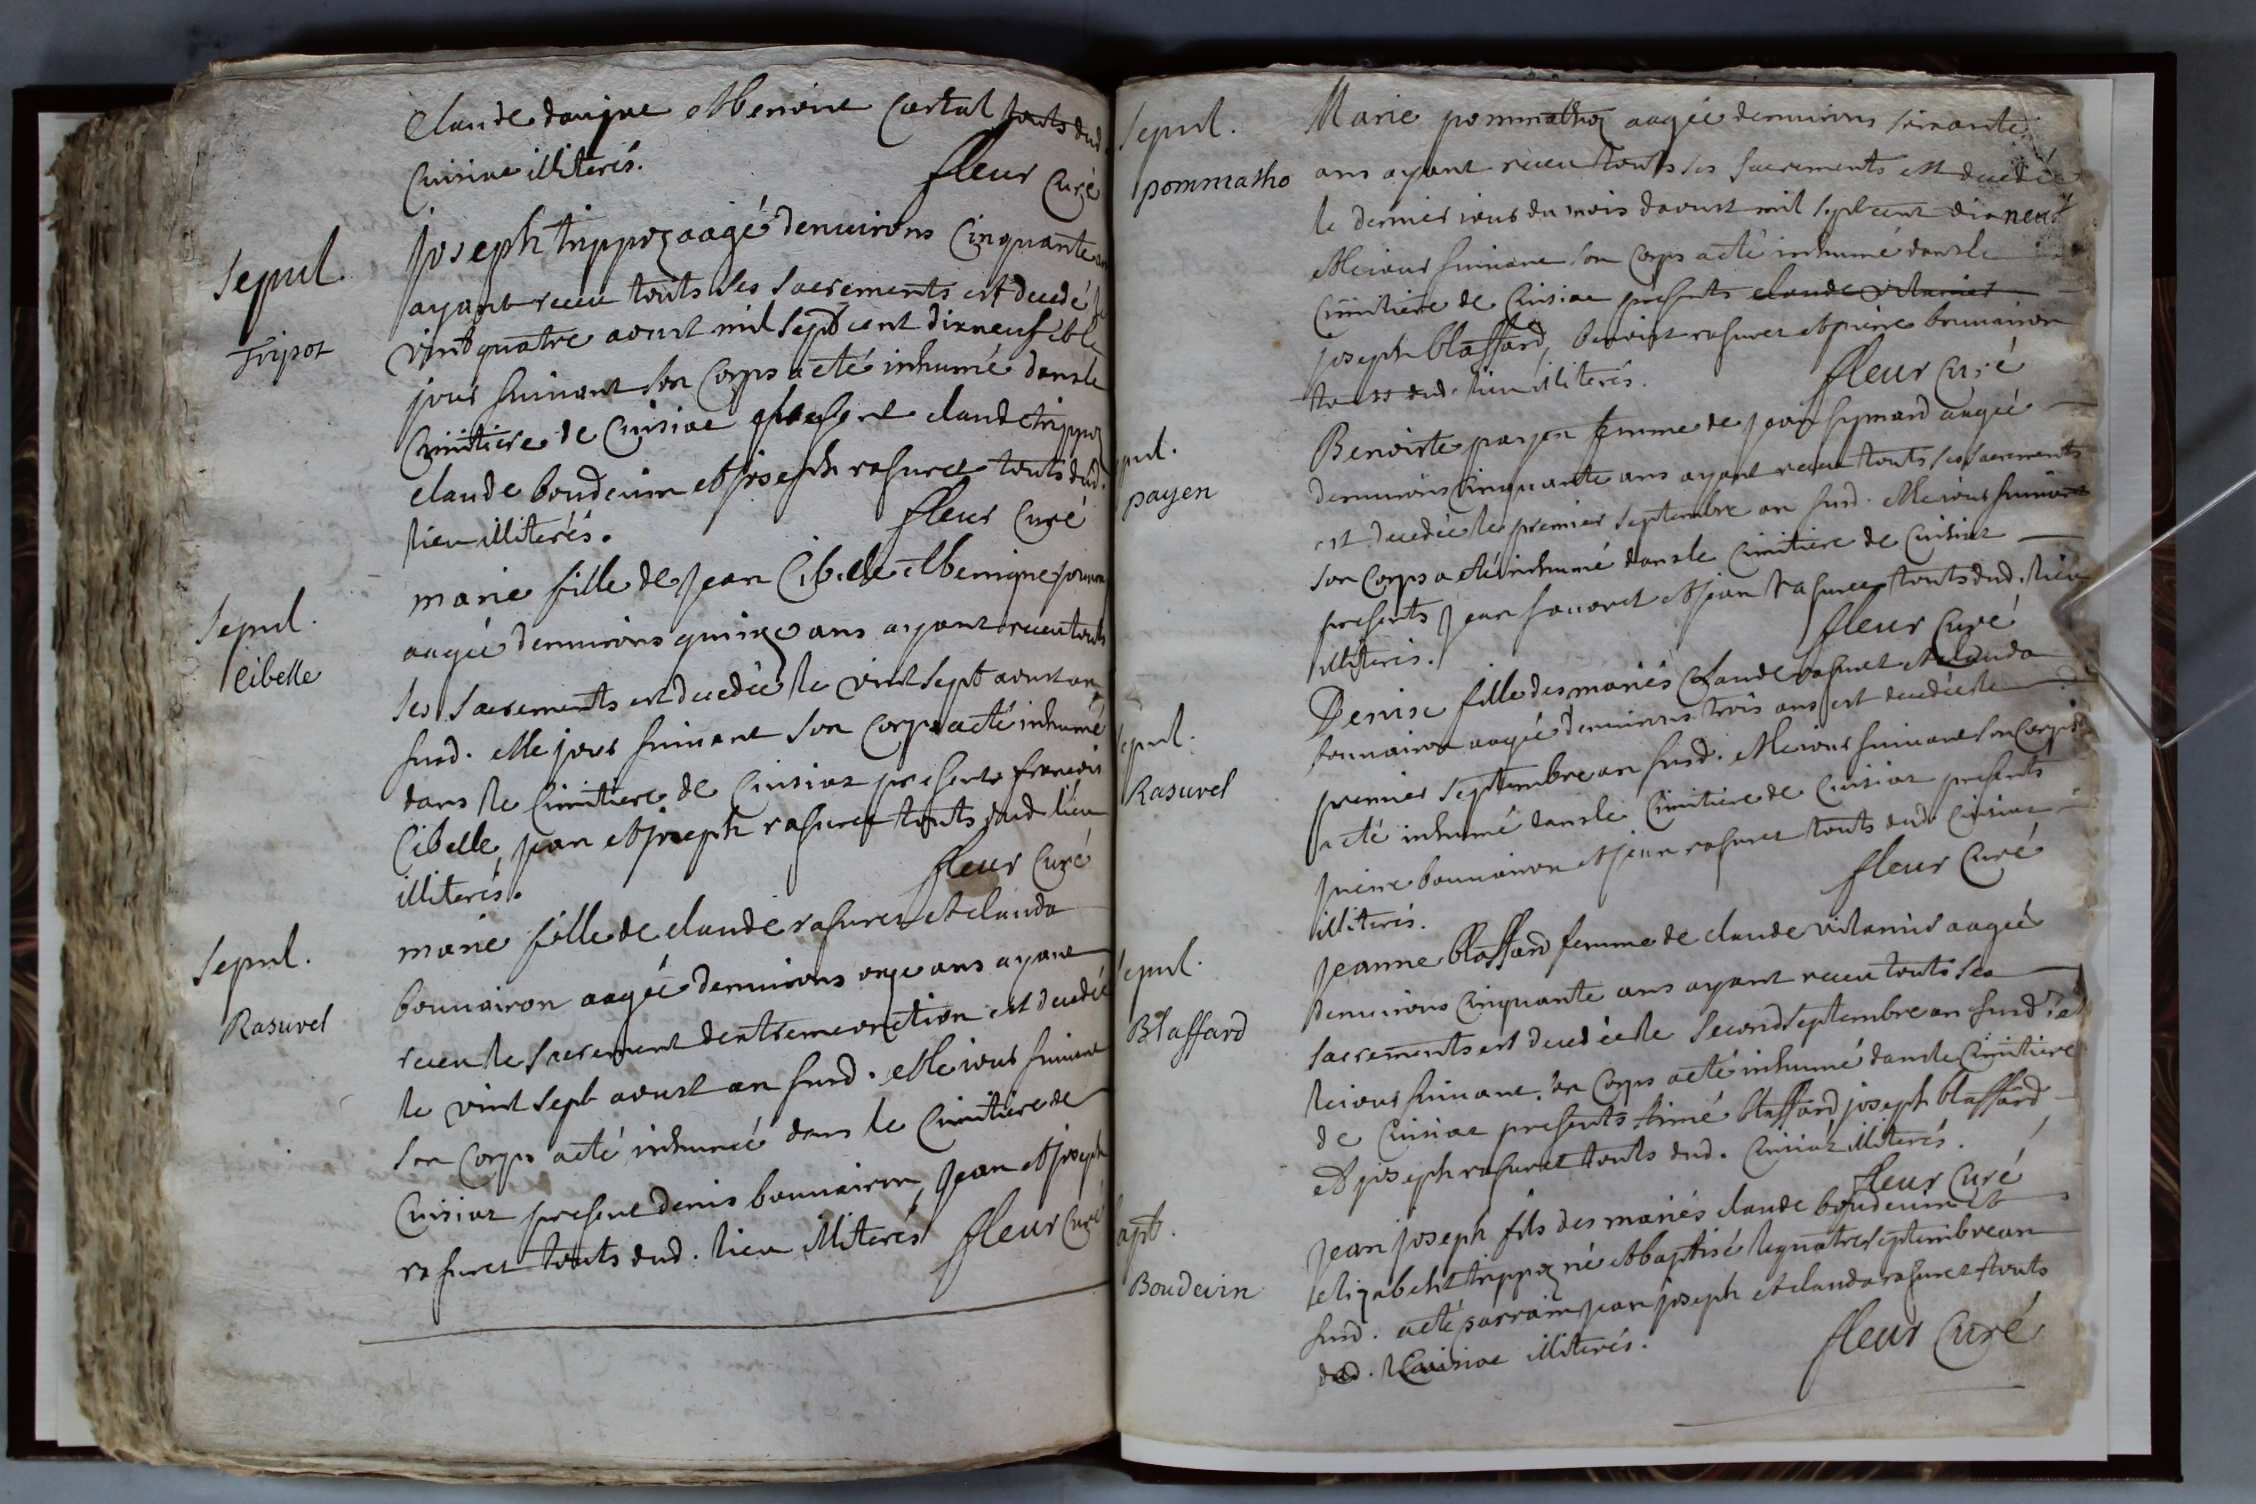 Claude et Benoist Cartal touts dud.
Cuisiae illiterés.
fleur Curé
Sepul.
Tripoz
joseph trippoz aagé denuirons Cinquante ans
ayant receu touts ses sacrements est decedé le
vint quatre aoust mil sept cent dix neuf et le
jour suiuant son Corps a eté inhumé dans le
Cimitiere de Cuisiae present claude trippoz
claude boudeuin et joseph rasurel touts dud.
lieu illiterés.
fleur Curé
Sepul.
Cibelle
marie fille de jean Cibelle et benigne
aagée denuirons quinze ans ayant receu touts
ses sacrements est decedée le vint sept aoust an
susd. et le jour suiuant son Corps a eté inhumé
dans le Cimitiere de Cuisiat presents francois
Cibelle, jean et joseph rasurel touts dud lieu
illiterés.
fleur Curé
Sepul.
Rasurel
marie fille de claude rasurel et clauda
bonnairon aagée denuirons onze ans ayant
receu le sacrement dextremeonction est decedée
le vint sept aoust an susd. et le iour suiuant
son Corps a eté inhumée dans le Cimitiere de
Cuisiat present denis bonnairon, jean et joseph
rasurel touts dud. lieu illiterés
fleur Curé
Sepul.
pommatho
Marie pommathoz aagée denuirons soixante
ans ayant receu touts ses sacrements est decedée
le dernier iour du mois daoust mil sept cent dix neuf
et le iour suiuant son Corps a eté inhumé dans le
Cimitiere de Cuisiae presents claude vitamier
joseph blaffard, benoist rasurel et pierre bonnairon
touts dud. lieu illiterés.
fleur Curé
pul.
payen
Benoiste payen femme de jean symard aagée
denuirons Cinquante ans ayant receu touts ses sacrements
est decedée le premier septembre an susd. et le iour suiuant
son Corps a eté inhumé dans le Cimitiere de Cuisiat
presents jean et jean rasurel touts dud. lieu
illiterés.
fleur Curé
epul.
Rasurel
Denise fille des mariés Claude rasurel et clauda
bonnairon aagée denuirons trois ans est decedée le
premier septembre an susd. et le iour suiuant son Corps
a eté inhumé dans le Cimitiere de Cuisiat presents
pierre bonnairon et jean rasurel touts dud. Cuisiat
illiterés.
fleur Curé
epul.
Blaffard
jeanne blaffard femme de claude vitamis aagée
denuirons Cinquante ans ayant receu touts ses
sacrements est decedée le second septembre an susd. et
le iour suiuant son Corps a eté inhumé dans le Cimitiere
de Cuisiat presents Aimé blaffard joseph blaffard
et joseph rasurel touts dud. Cuisiat illiterés.
fleur Curé
bapt.
Boudeuin
jean joseph fils des mariés claude boudeuin et
elizabeht trippoz né et baptisé le quatre septembre an
susd. a eté parrain jean joseph et clauda rasurel touts
dud. Cuisiae illiterés.
fleur Curé